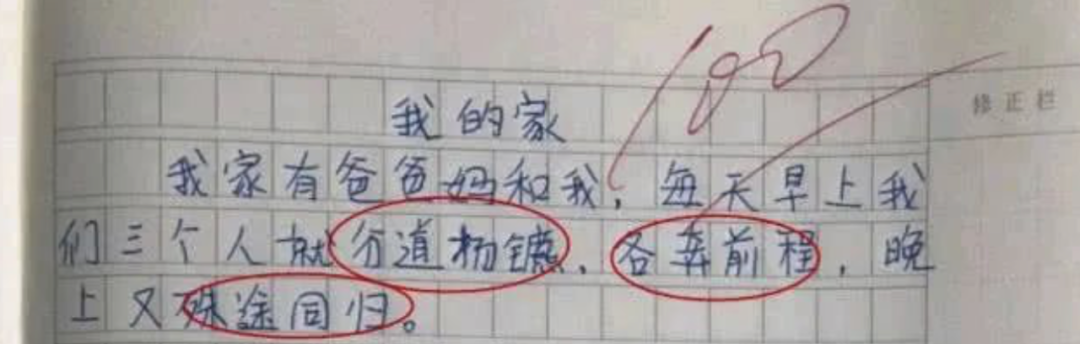 100
我的家
修正栏
我家有爸爸妈和我，每天早上我
们三个人就分道杨镳，各奔前程，晚
上又殊途同归。